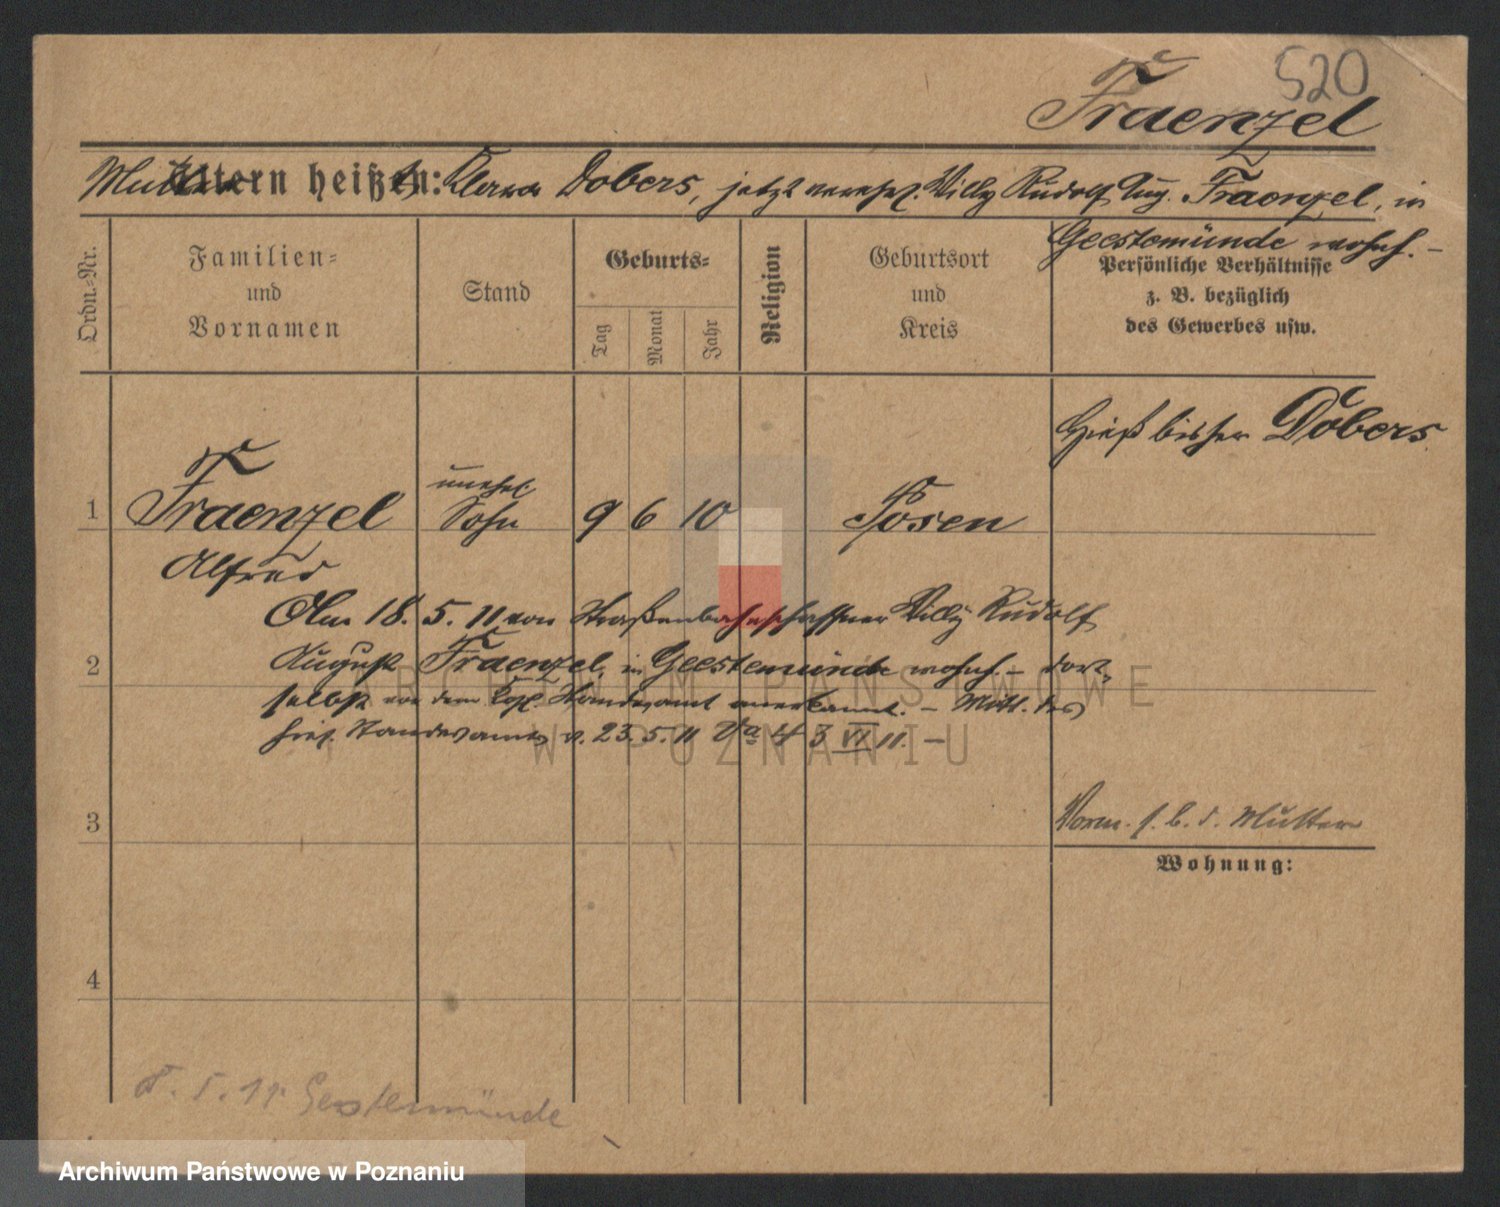 520
Fraenzel
Mutter heißt: Klara Dobers, jetzt verehel. Willy Rudolf Aug. Fraenzel, in
Geestemünde wohnh. –
Ordn.-Nr.
Familien-
und
Vornamen
Stand
Geburts-
Tag
Monat
Jahr
Religion
Geburtsort
und
Kreis
Persönliche Verhältnisse
z. B. bezüglich
des Gewerbes usw.
Hieß bisher Dobers
1
Fraenzel
Alfred
unehel.
Sohn
9
6
10
Posen
Am 18. 5. 11 von Straßenbahnschaffner Willy Rudolf
2
August Fraenzel, in Geestemünde wohnh. – dort-
selbst vor dem Kgl. Standesamt anerkannt. – Mitt. des
hies. Standesamts v. 23. 5. 11 3 VI 11. –
3
Vorm. s. b. d. Mutter
Wohnung:
4
5. 11 Geestemünde
ARCHIWUM PAŃSTWOWE
W POZNANIU
Archiwum Państwowe w Poznaniu